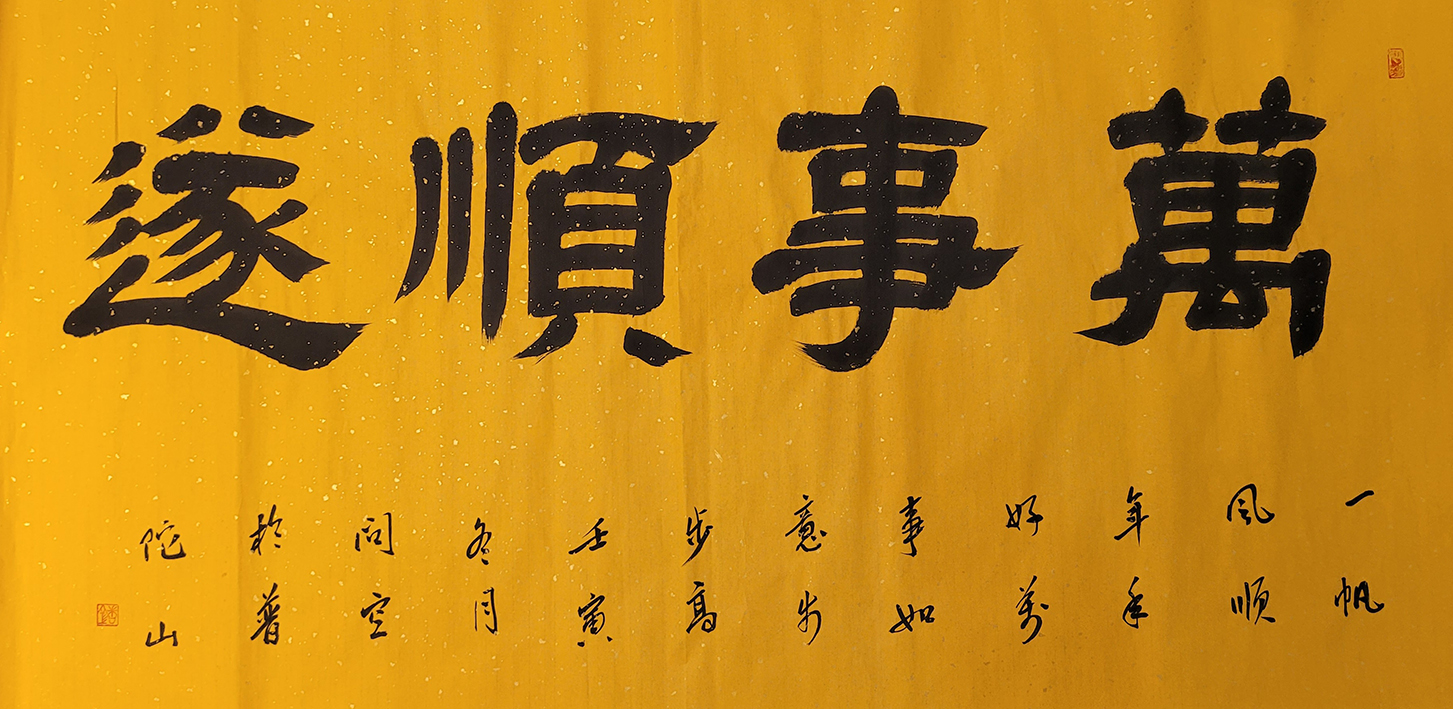 萬事順遂
一帆
风顺
年年
好萬
事如
意步
步高
壬寅
冬月
问空
於普
陀山